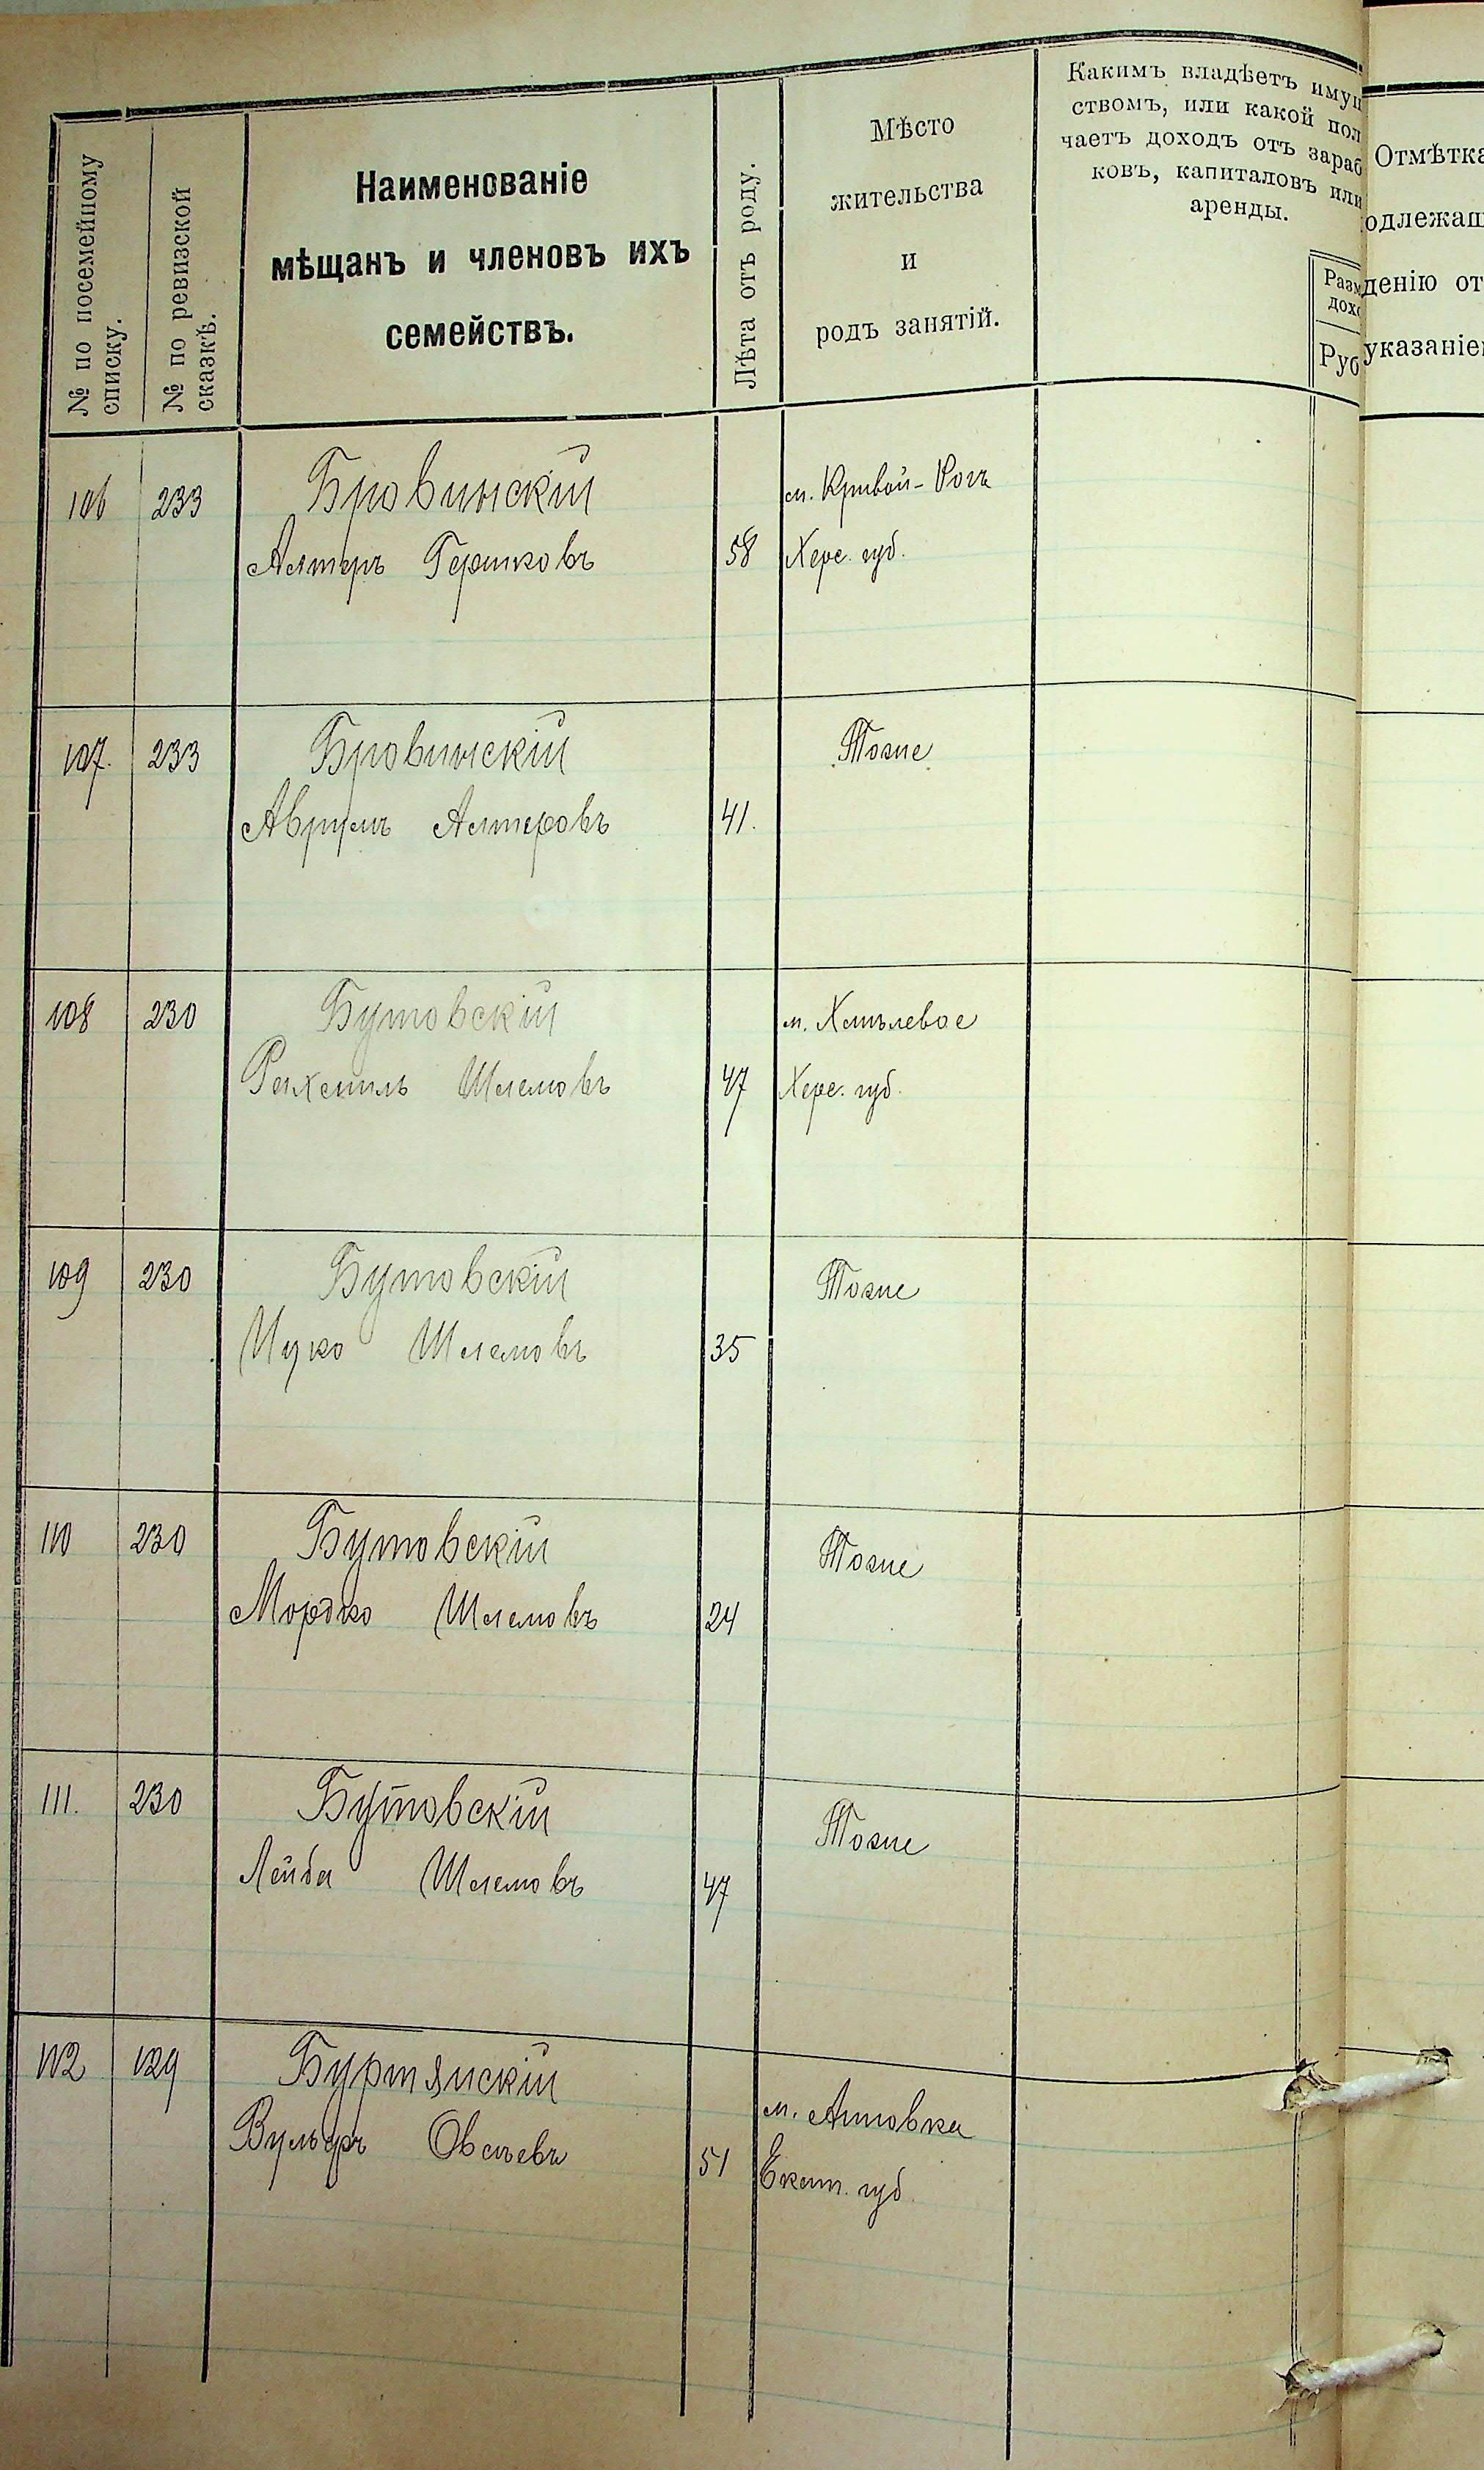 № по посемейному
списку.
№ по ревизской
сказкѣ.
Наименованіе
мѣщанъ и членовъ ихъ
семействъ.
Лѣта отъ роду.
Мѣсто
жительства
и
родъ занятій.
Какимъ владѣетъ имущ
ствомъ, или какой пол
чаетъ доходъ отъ зараб
ковъ, капиталовъ или
аренды.
Разм
дохо
Руб
Отмѣтка
одлежащ
денію от
указаніе
106 233 Бровинскій м. Кривой-Рогъ
Алтеръ Гершковъ 58 Херс. губ.
107. 233 Бровинскій Тоже
Аврумъ Алтеровъ 41.
108 230 Бутовскій м. Хмѣлевое
Рахмиль Шлемовъ 47 Херс. губ.
109 230 Бутовскій Тоже
Ицко Шлемовъ 35
110 230 Бутовскій Тоже
Мордко Шлемовъ 24
111. 230 Бутовскій Тоже
Лейба Шлемовъ 47
112 129 Буртянскій м.
Вульфъ Овсѣевъ 51 Екат. губ.